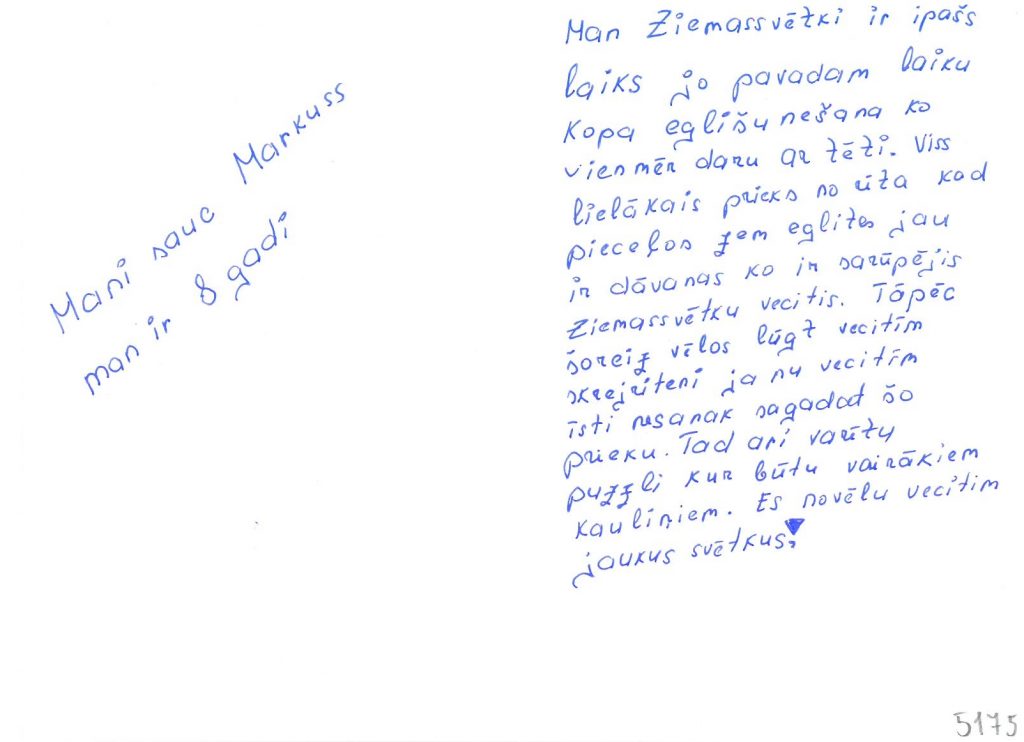 Mani sauc Markuss
man ir 8 gadi
Man Ziemassvētki ir ipašs
laiks jo pavadam laiku
kopa eglīšu nešana ko
vienmēr daru ar tēti. Viss
lielākais prieks no rīta kad
pieceļos zem eglites jau
ir dāvanas ko ir sarūpējis
Ziemassvētku vecitis. Tāpēc
šoreiz vēlos lūgt vecitīm
skrejriteni ja nu vecitīm
īsti nesanak sagadat šo
prieku. Tad ari varētu
puzzli kur būtu vairākiem
kauliņiem. Es novēlu vecitim
jaukus svētkus,
5175